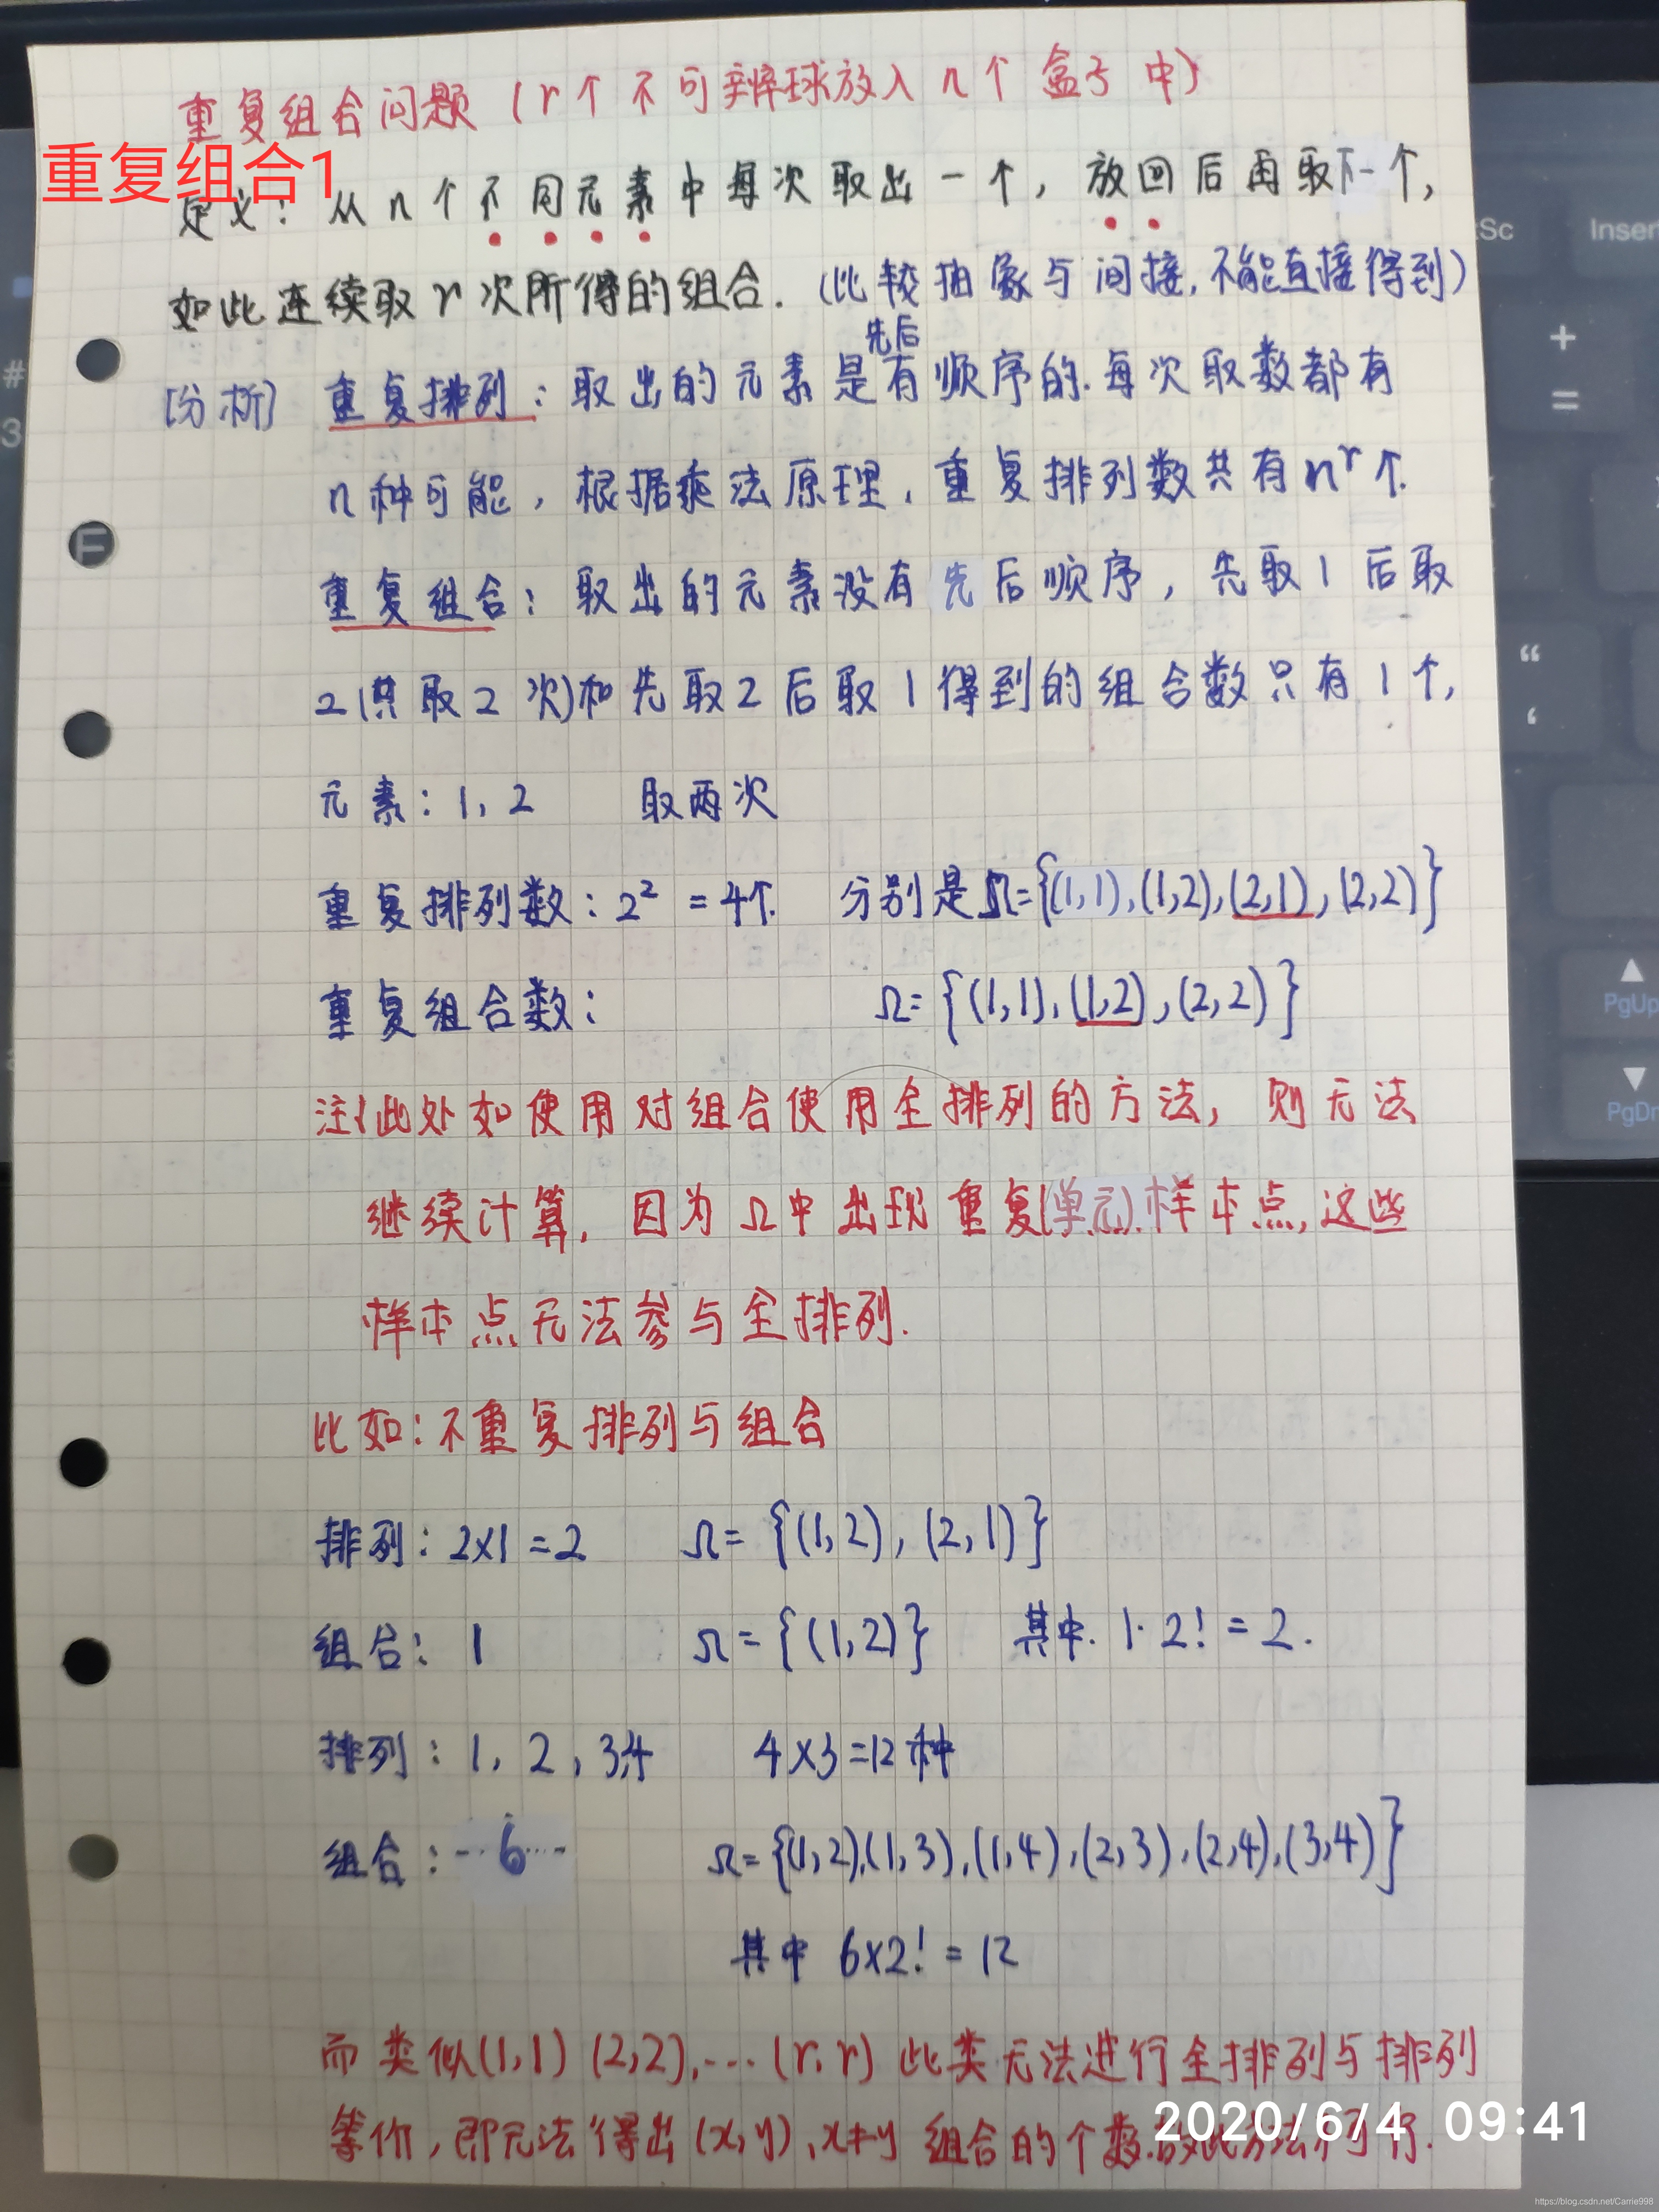 重复组合问题（r个不可辨球放入n个盒子中）
重复组合1
定义：从n个不同元素中每次取出一个，放回后再取下一个，
如此连续取r次所得的组合.（比较抽象与间接,不能直接得到）
先后
[分析] 重复排列：取出的元素是有顺序的.每次取数都有
n种可能，根据乘法原理，重复排列数共有nʳ个.
重复组合：取出的元素没有先后顺序，先取1后取
2(共取2次)和先取2后取1得到的组合数只有1个，
元素：1, 2 取两次
重复排列数：2² = 4个. 分别是Ω={(1,1),(1,2),(2,1),(2,2)}
重复组合数： Ω={(1,1),(1,2),(2,2)}
注:此处如使用对组合使用全排列的方法，则无法
继续计算，因为Ω中出现重复(单元)样本点,这些
样本点无法参与全排列.
比如：不重复排列与组合
排列：2×1=2 Ω={(1,2),(2,1)}
组合：1 Ω={(1,2)} 其中.1·2!=2.
排列：1, 2, 3,4 4×3=12种
组合：--6--- Ω={(1,2),(1,3),(1,4),(2,3),(2,4),(3,4)}
其中 6×2!=12
而类似(1,1)(2,2),···(r,r)此类无法进行全排列与排列
等价，即无法得出(x,y),x≠y组合的个数.故此方法不可行.
2020/6/4 09:41
Sc
Inser
+
=
#
3
“
‘
PgUp
PgDn
https://blog.csdn.net/Carrie998